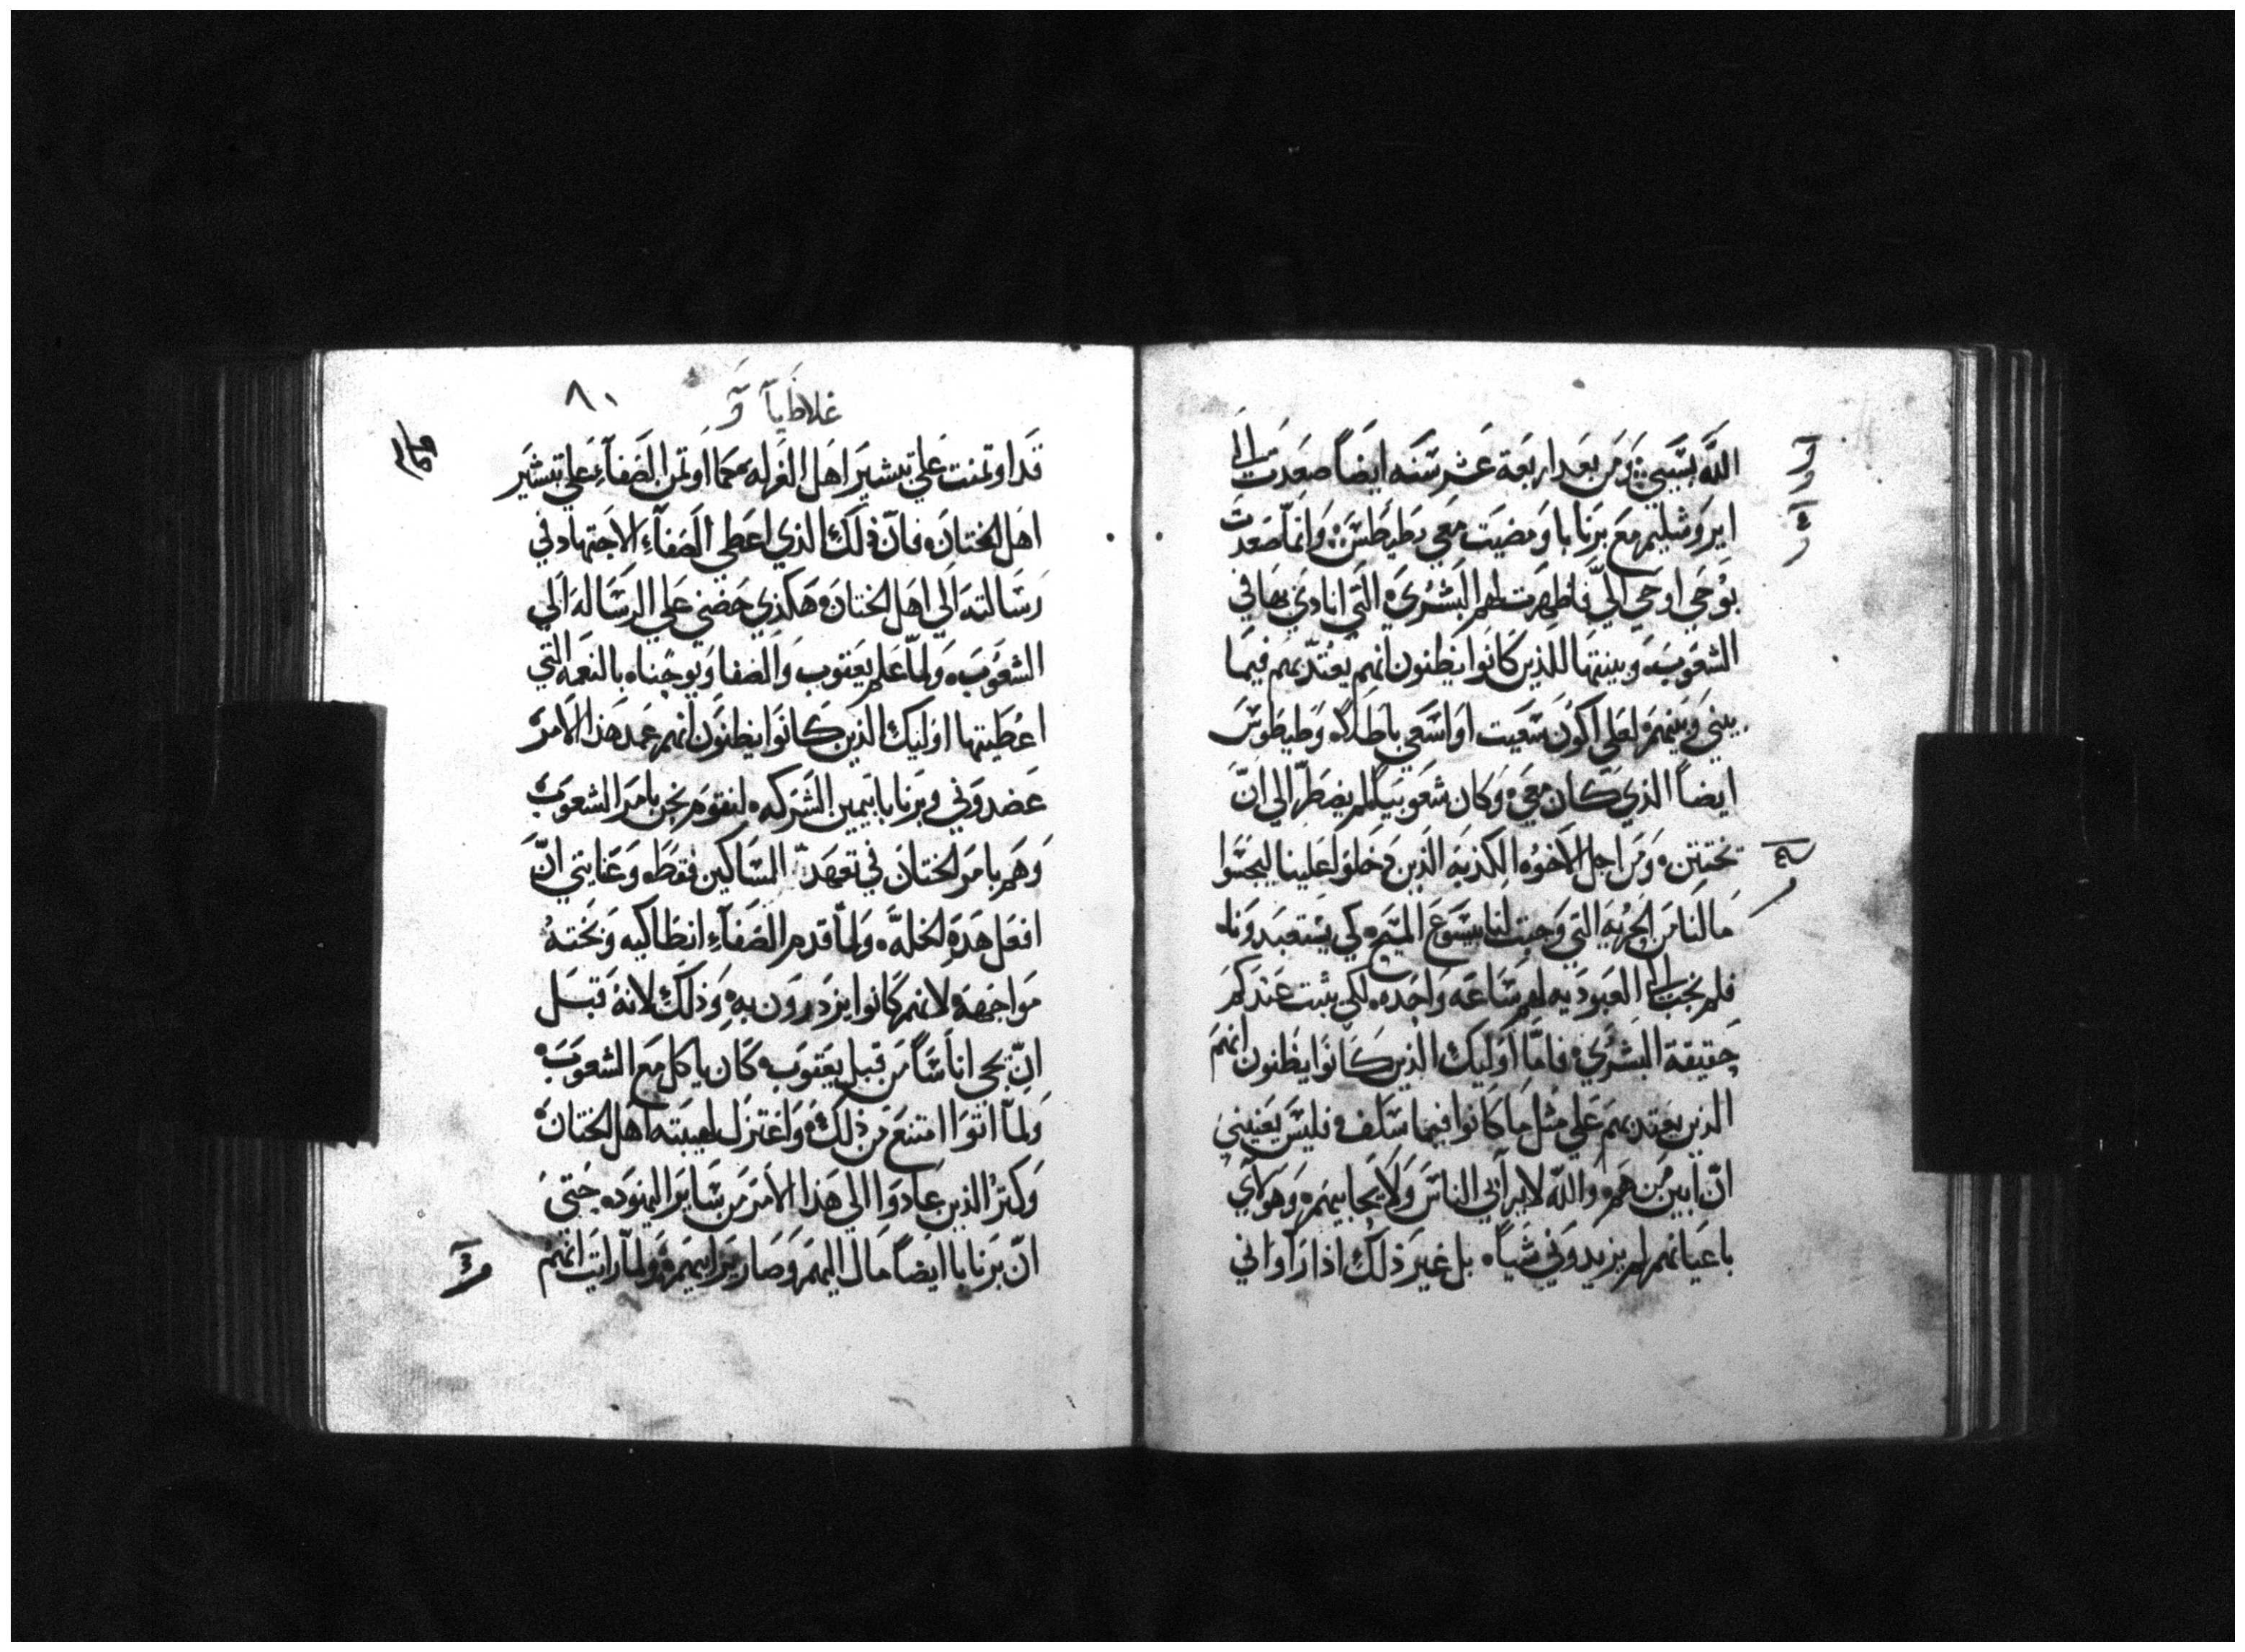 الله بسببي ومن بعد اربعة عشر سنه ايضاً صعدت الي
ايروشليم مع برنابا ومضيت معي بطيطس وانما صعدت
بوحي اوحي اليّ فاظهرت لهم البشري التي انادي بها في
الشعوب وبينتها للذين كانوا يظنون انهم يعتدّ بهم فيما
بيني وبينهم لعلي اكون سعيت او اسعي باطلاً وطيطوس
ايضاً الذي كان معي وكان شعوبياً لم يضطرّ الي انّ
تختتن ومن اجل الاخوه الكذبه الذين دخلوا علينا ليجسّوا
ما لنا من الحريه التي وجبت لنا بيسوع المسيح كي يستعبدونا
فلم نجب الي العبوديه لهم ساعه واحده لكي يثبت عندكم
حقيقة البشري فامّا اوليك الذين كانوا يظنون انهم
الذين يعتد بهم علي مثل ما كانوا فيما سلف فليس يعنيني
انّ ابين من هم والله لا يرآيي الناس ولا يحابيهم وهولآي
باعيانهم لم يزيدوني شياً بل غير ذلك اذا راواني
غلاطيا و ٨٠
قد اوتمنت علي تبشير اهل الغرله كما اوتمن الصفآء علي تبشير
اهل الختان فانّ ذلك الذي اعطي الصفآء الاجتهاد في
رسالته الي اهل الختان هكذي حضني علي الرساله الي
الشعوب ولمّا علم يعقوب والصفا ويوحنا بالنعمه التي
اعطيتها اوليك الذين كانوا يظنون انهم عمد هذا الامر
عضدوني وبرنابا بيمين الشركه لنقوم نحن بامر الشعوب
وهم بامر الختان في تعهد المساكين فقط وعنايتي انّ
افعل هذه الخلّه ولمّا قدم الصفآء انطاكيه وبخته
مواجهه لانهم كانوا يزدرون به وذلك لانه قبل
انّ يجي اناساً من قبل يعقوب كان ياكل مع الشعوب
ولمّا اتوا امتنع من ذلك واعتزل لهيبته اهل الختان
وكثر الذين عادوا الي هذا الامر من ساير اليهود حتي
انّ برنابا ايضاً مال اليهم وصار يراييهم ولمّا رايت انهم